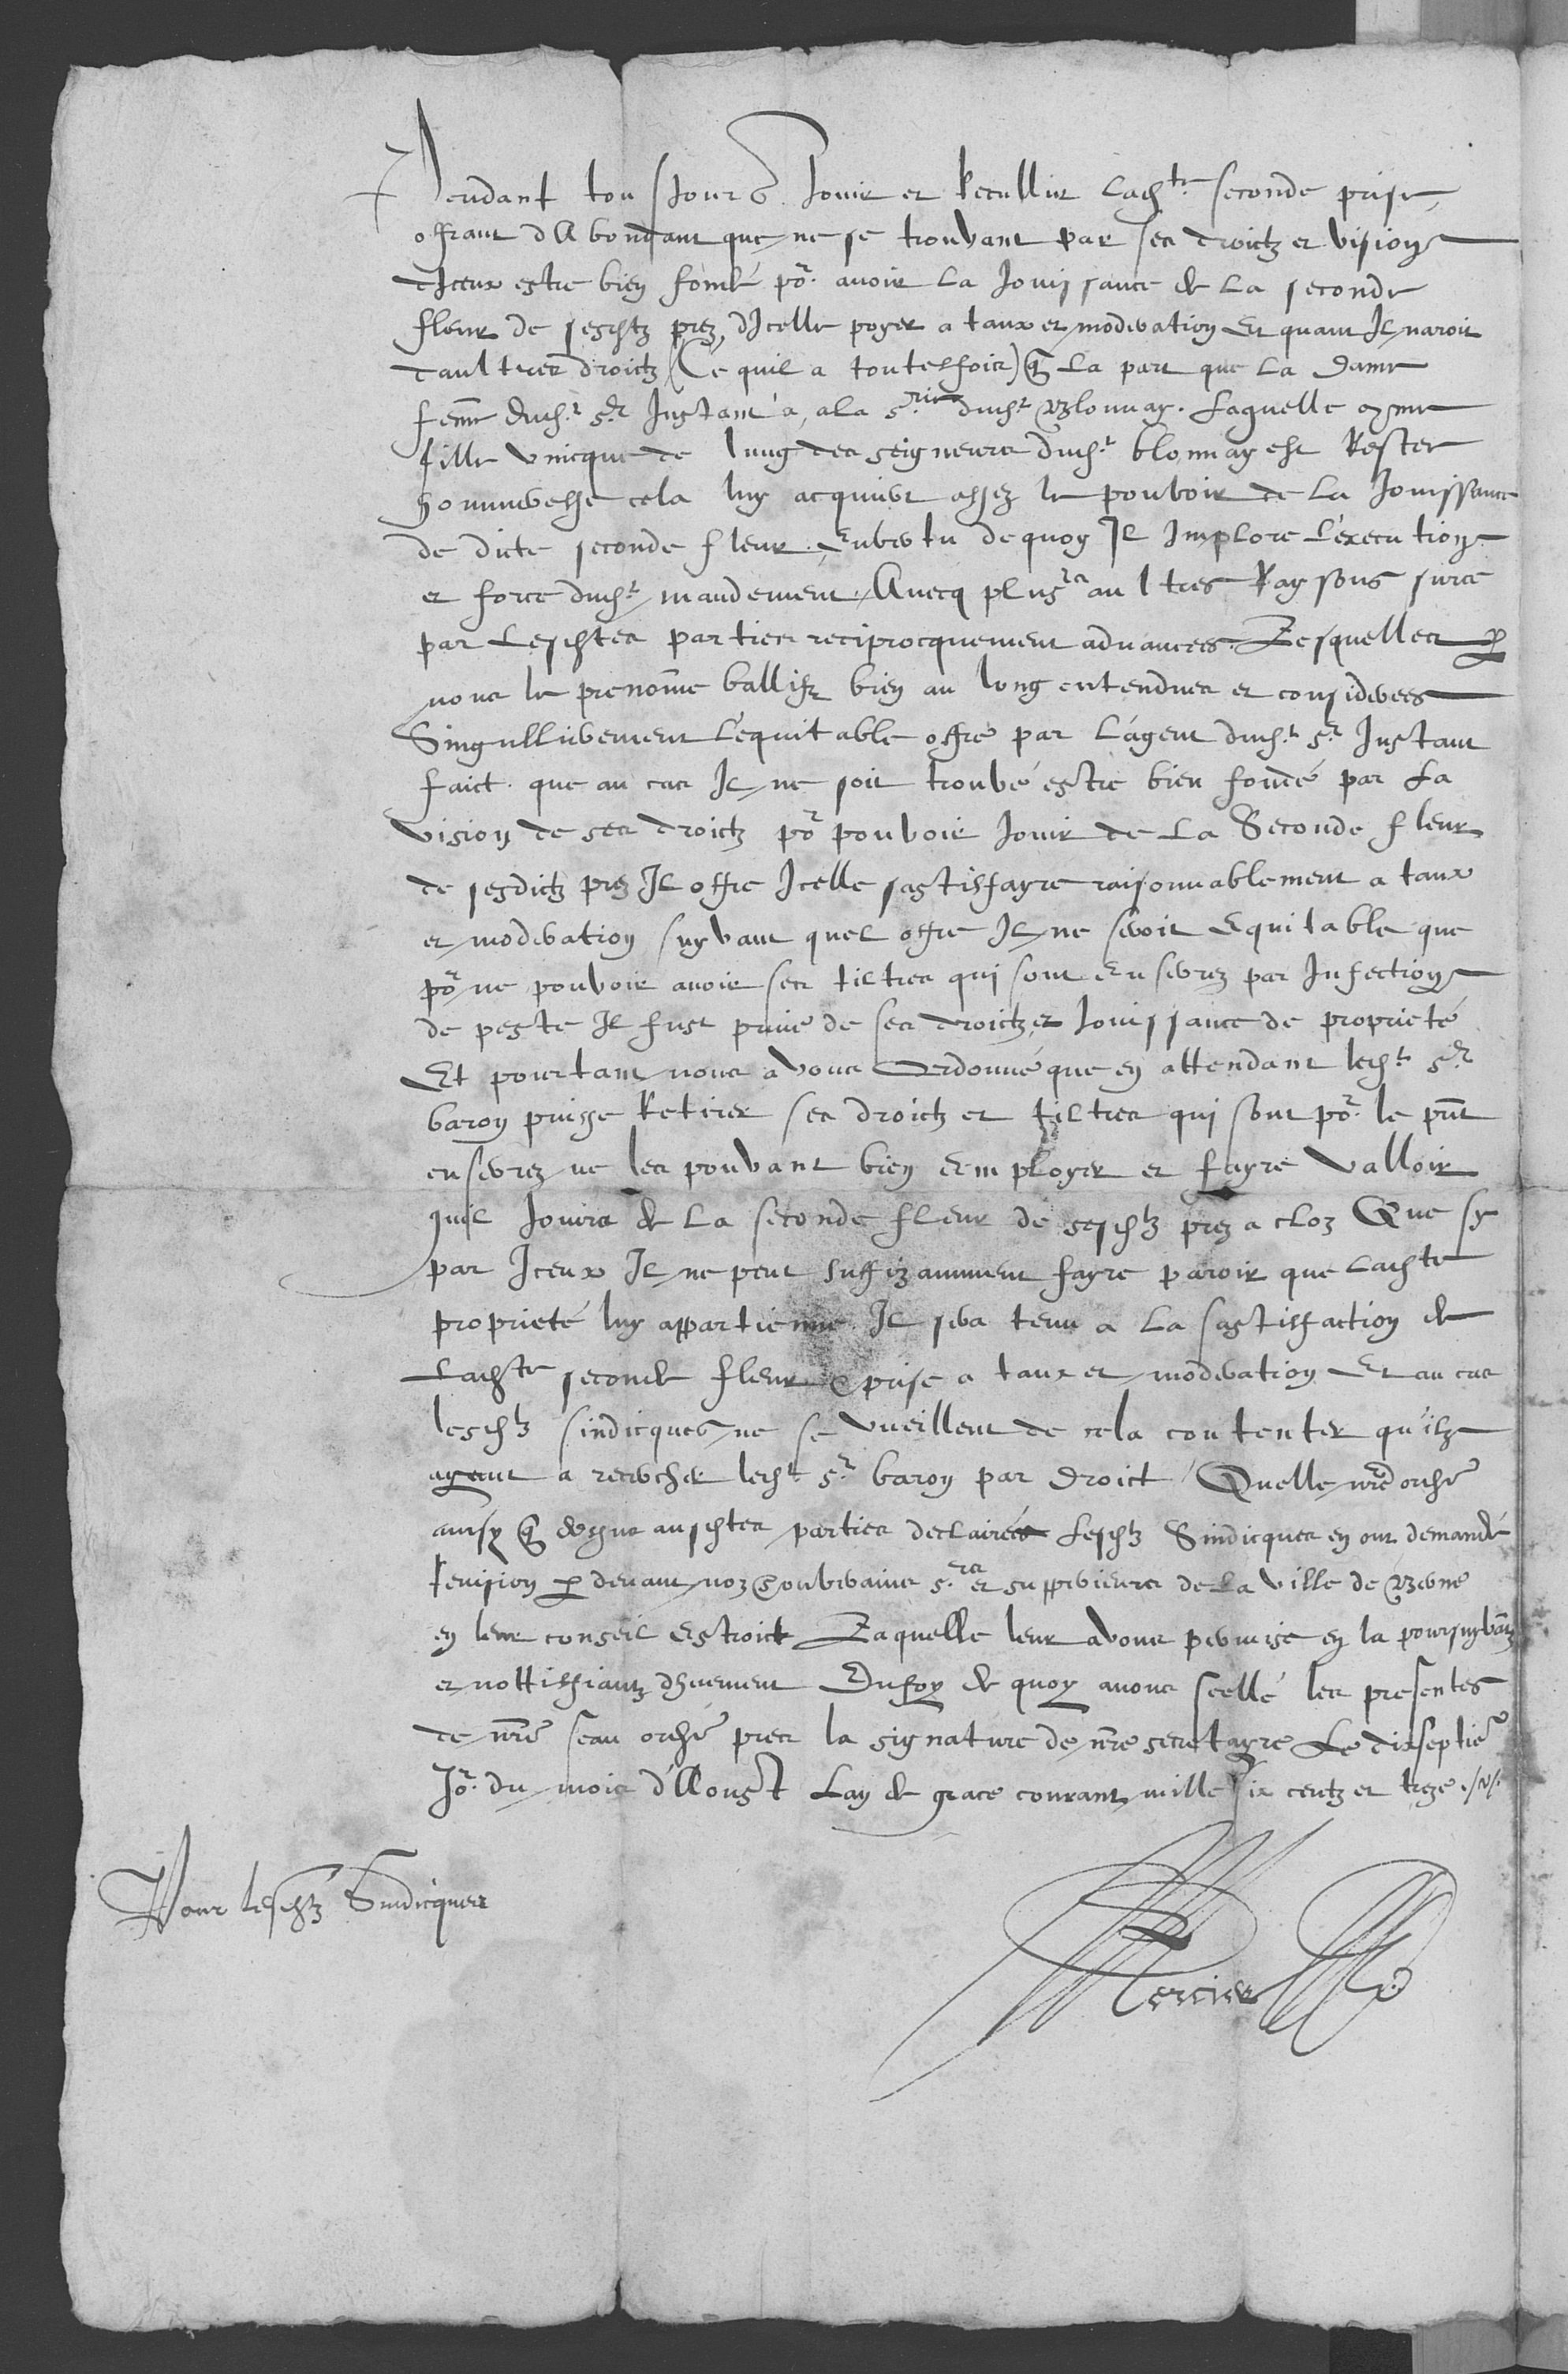 Pendant tousjours Jouir et Recullir lad.te seconde prise
offrant dAbondant que ne se trouvant par ses droictz et vision
dIceux estre bien fondé po.r avoir la Jouissance de la seconde
fleur de sesdtz prez, dIcelle poyer a taux et moderation Et quant Il naroit
daultres droictz (Ce quil a toutesfois) q la part que la Dame
femme dud.t s.r Instant a, a la s.rie dud.t Blonnay. Laquelle come
fille unicque de lung des seigneurs dud.t blonnay est Restee
 cela luy acquiert assez le pouvoir de la Jouissance
de dicte seconde fleur. Envertu dequoy Il Implore l'execution
et force dud.t mandement. Avecq plus.rs aultres Raysons surce
par Lesdtes parties reciprocquement advancees. Lesquelles p
nous le prenommé ballifz bien au long entendues et considerees
Singullierement L'equitable offre par L'agent dud.t s.r Instant
faict. que au cas Il ne soit trouvé estre bien fondé par La
vision de ses droictz po.r pouvoir Jouir de La Seconde fleur
de sesdictz prez Il offre Icelle sastisfayre raisonnablement a taux
et moderation suyvant quel offre Il ne seroit Equitable que
po.r ne pouvoir avoir ses tiltres qui sont enserrez par Infection
de peste Il fust privé de ses droictz et Jouissance de proprieté
Et pourtant nous avons Ordonné que en attendant led.t s.r
baron puisse Retirer ses droictz et tiltres qui sont po.r le pnt
enserrez ne les pouvant bien Employer et fayre Valloir
quil Jouira de La seconde fleur de sesdtz prez a cloz Que sy
par Iceux Il ne peut suffizamment fayre paroir que Ladte
proprieté luy appartienne. Il sera tenu a La sastisfaction de
Ladte seconde fleur & prise a taux et moderation Et au cas
lesdtz sindicques ne se vueillent de cela contenter qu'ilz
ayent a rechercher led.t s.r baron par Droict Quelle nre ordce
ausdtes parties declairée Lesdtz Sindicques en ont demandé
revision p devant noz Souverains s.rs et supperieurs de La Ville de Berne
en leur conseil Estroict Laquelle leur avons permise en la poursuyvantz
et nottiffiantz dheuement Enfoy de quoy avons scellé les presentes
de nre seau ordre pres la signature de nre secretayre Le dixseptie
Jo.r du mois d'Aoust Lan de grace courant mille six centz et treze
Pour lesdtz Sindicques
Mercier